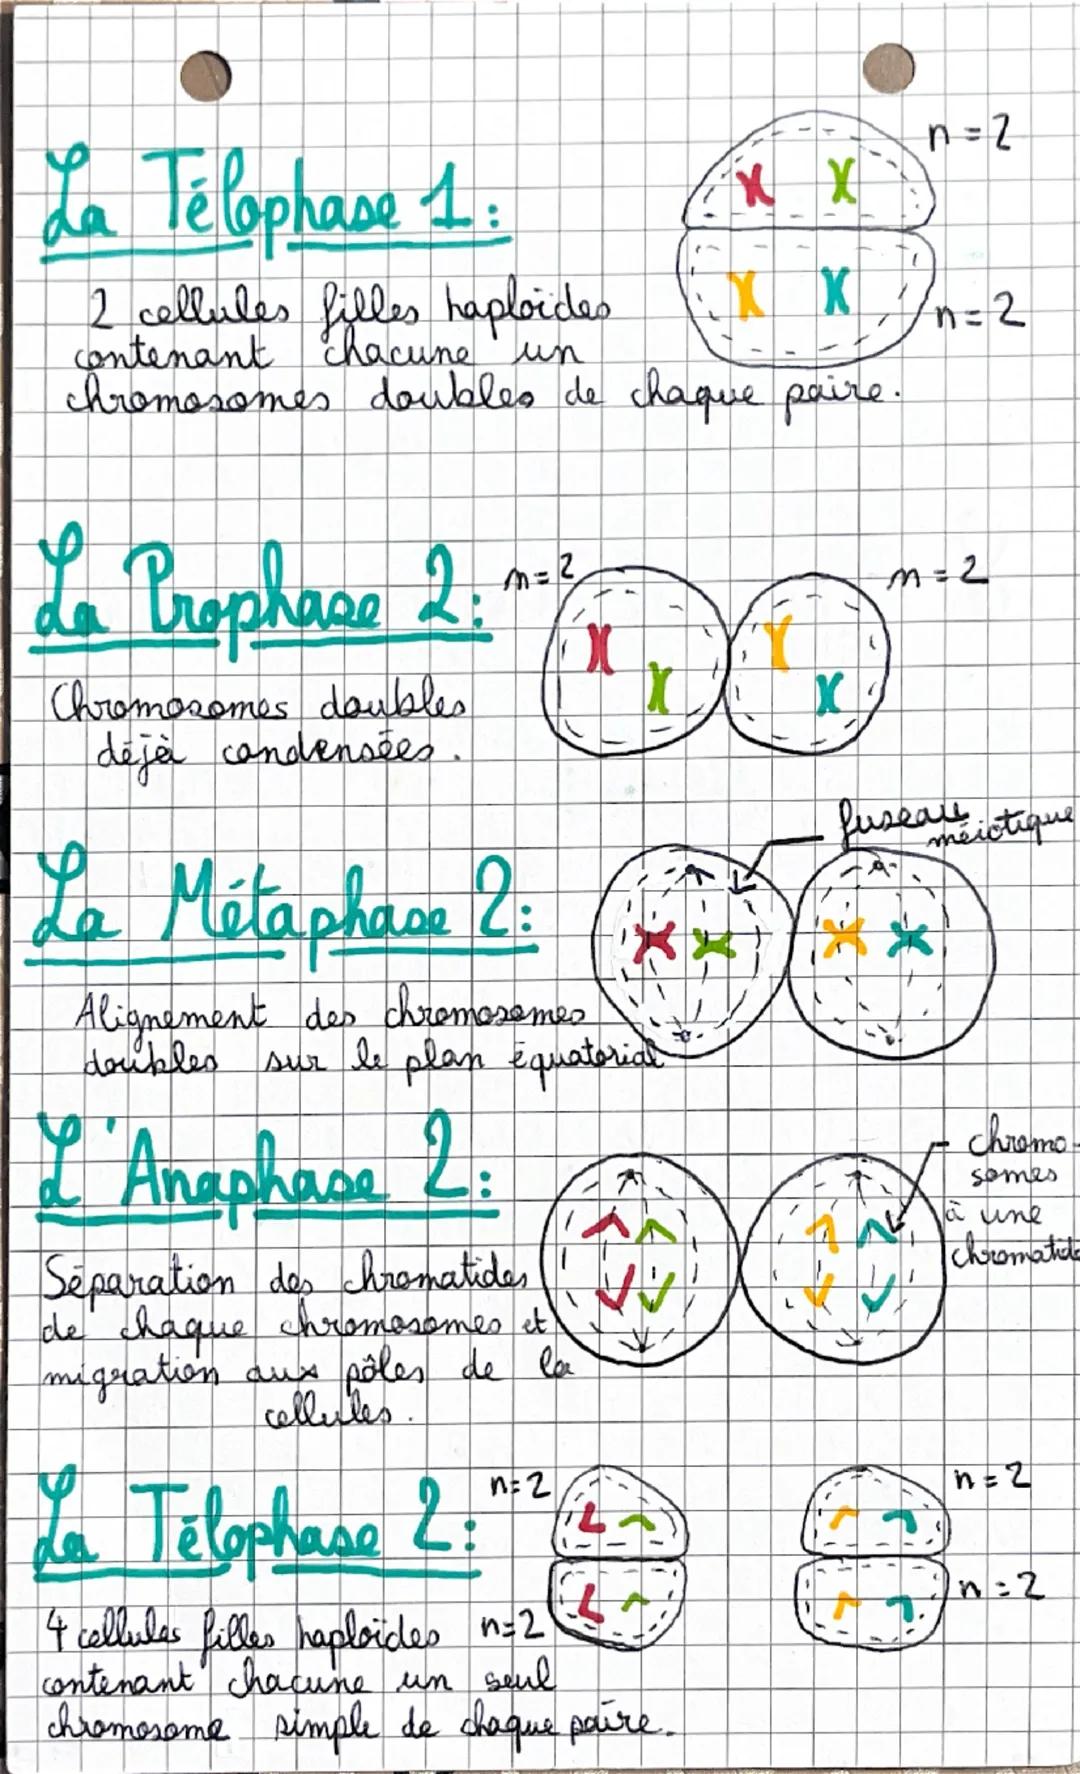 La Télophase 1:
n=2
2 cellules filles haploïdes
contenant chacune un
chromosomes doubles de chaque paire.
n=2
La Prophase 2:
n=2
n=2
Chromosomes doubles
déjà condensées.
fuseau
méiotique
La Métaphase 2:
Alignement des chromosomes
doubles sur le plan équatorial
L'Anaphase 2:
chromo-
somes
à une
chromatide
Séparation des chromatides
de chaque chromosomes et
migration aux pôles de la
cellules.
La Télophase 2:
n=2
n=2
4 cellules filles haploïdes
n=2
n=2
contenant chacune un seul
chromosome simple de chaque paire.